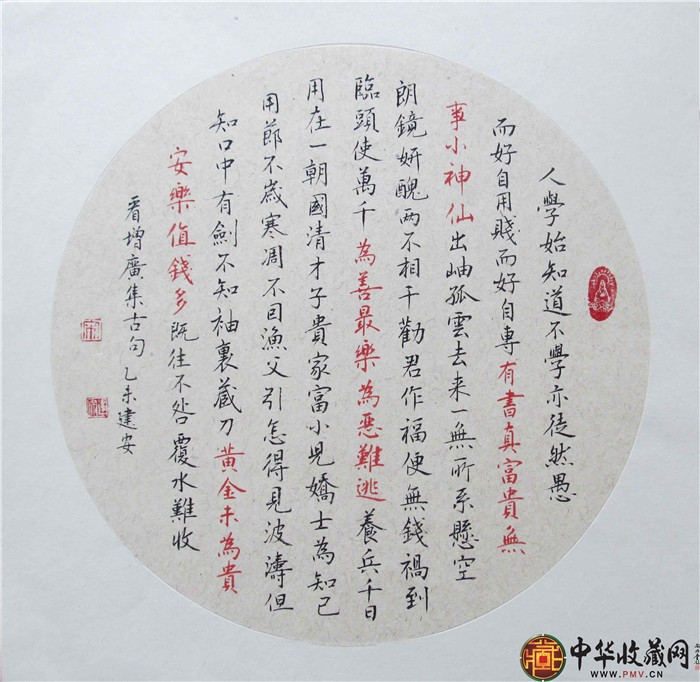 人學始知道不學亦徒然愚
而好自用賤而好自專有書真富貴無
事小神仙出岫孤雲去来一無所系懸空
朗鏡妍醜兩不相干勸君作福便無錢禍到
臨頭使萬千為善最樂為惡難逃養兵千日
用在一朝國清才子貴家富小児嬌士為知己
用節不歲寒凋不因漁父引怎得見波濤但
知口中有劍不知袖裏藏刀黃金未為貴
安樂值錢多既往不咎覆水難收
看增廣集古句乙未建安
中华收藏网
WWW.PMV.CN